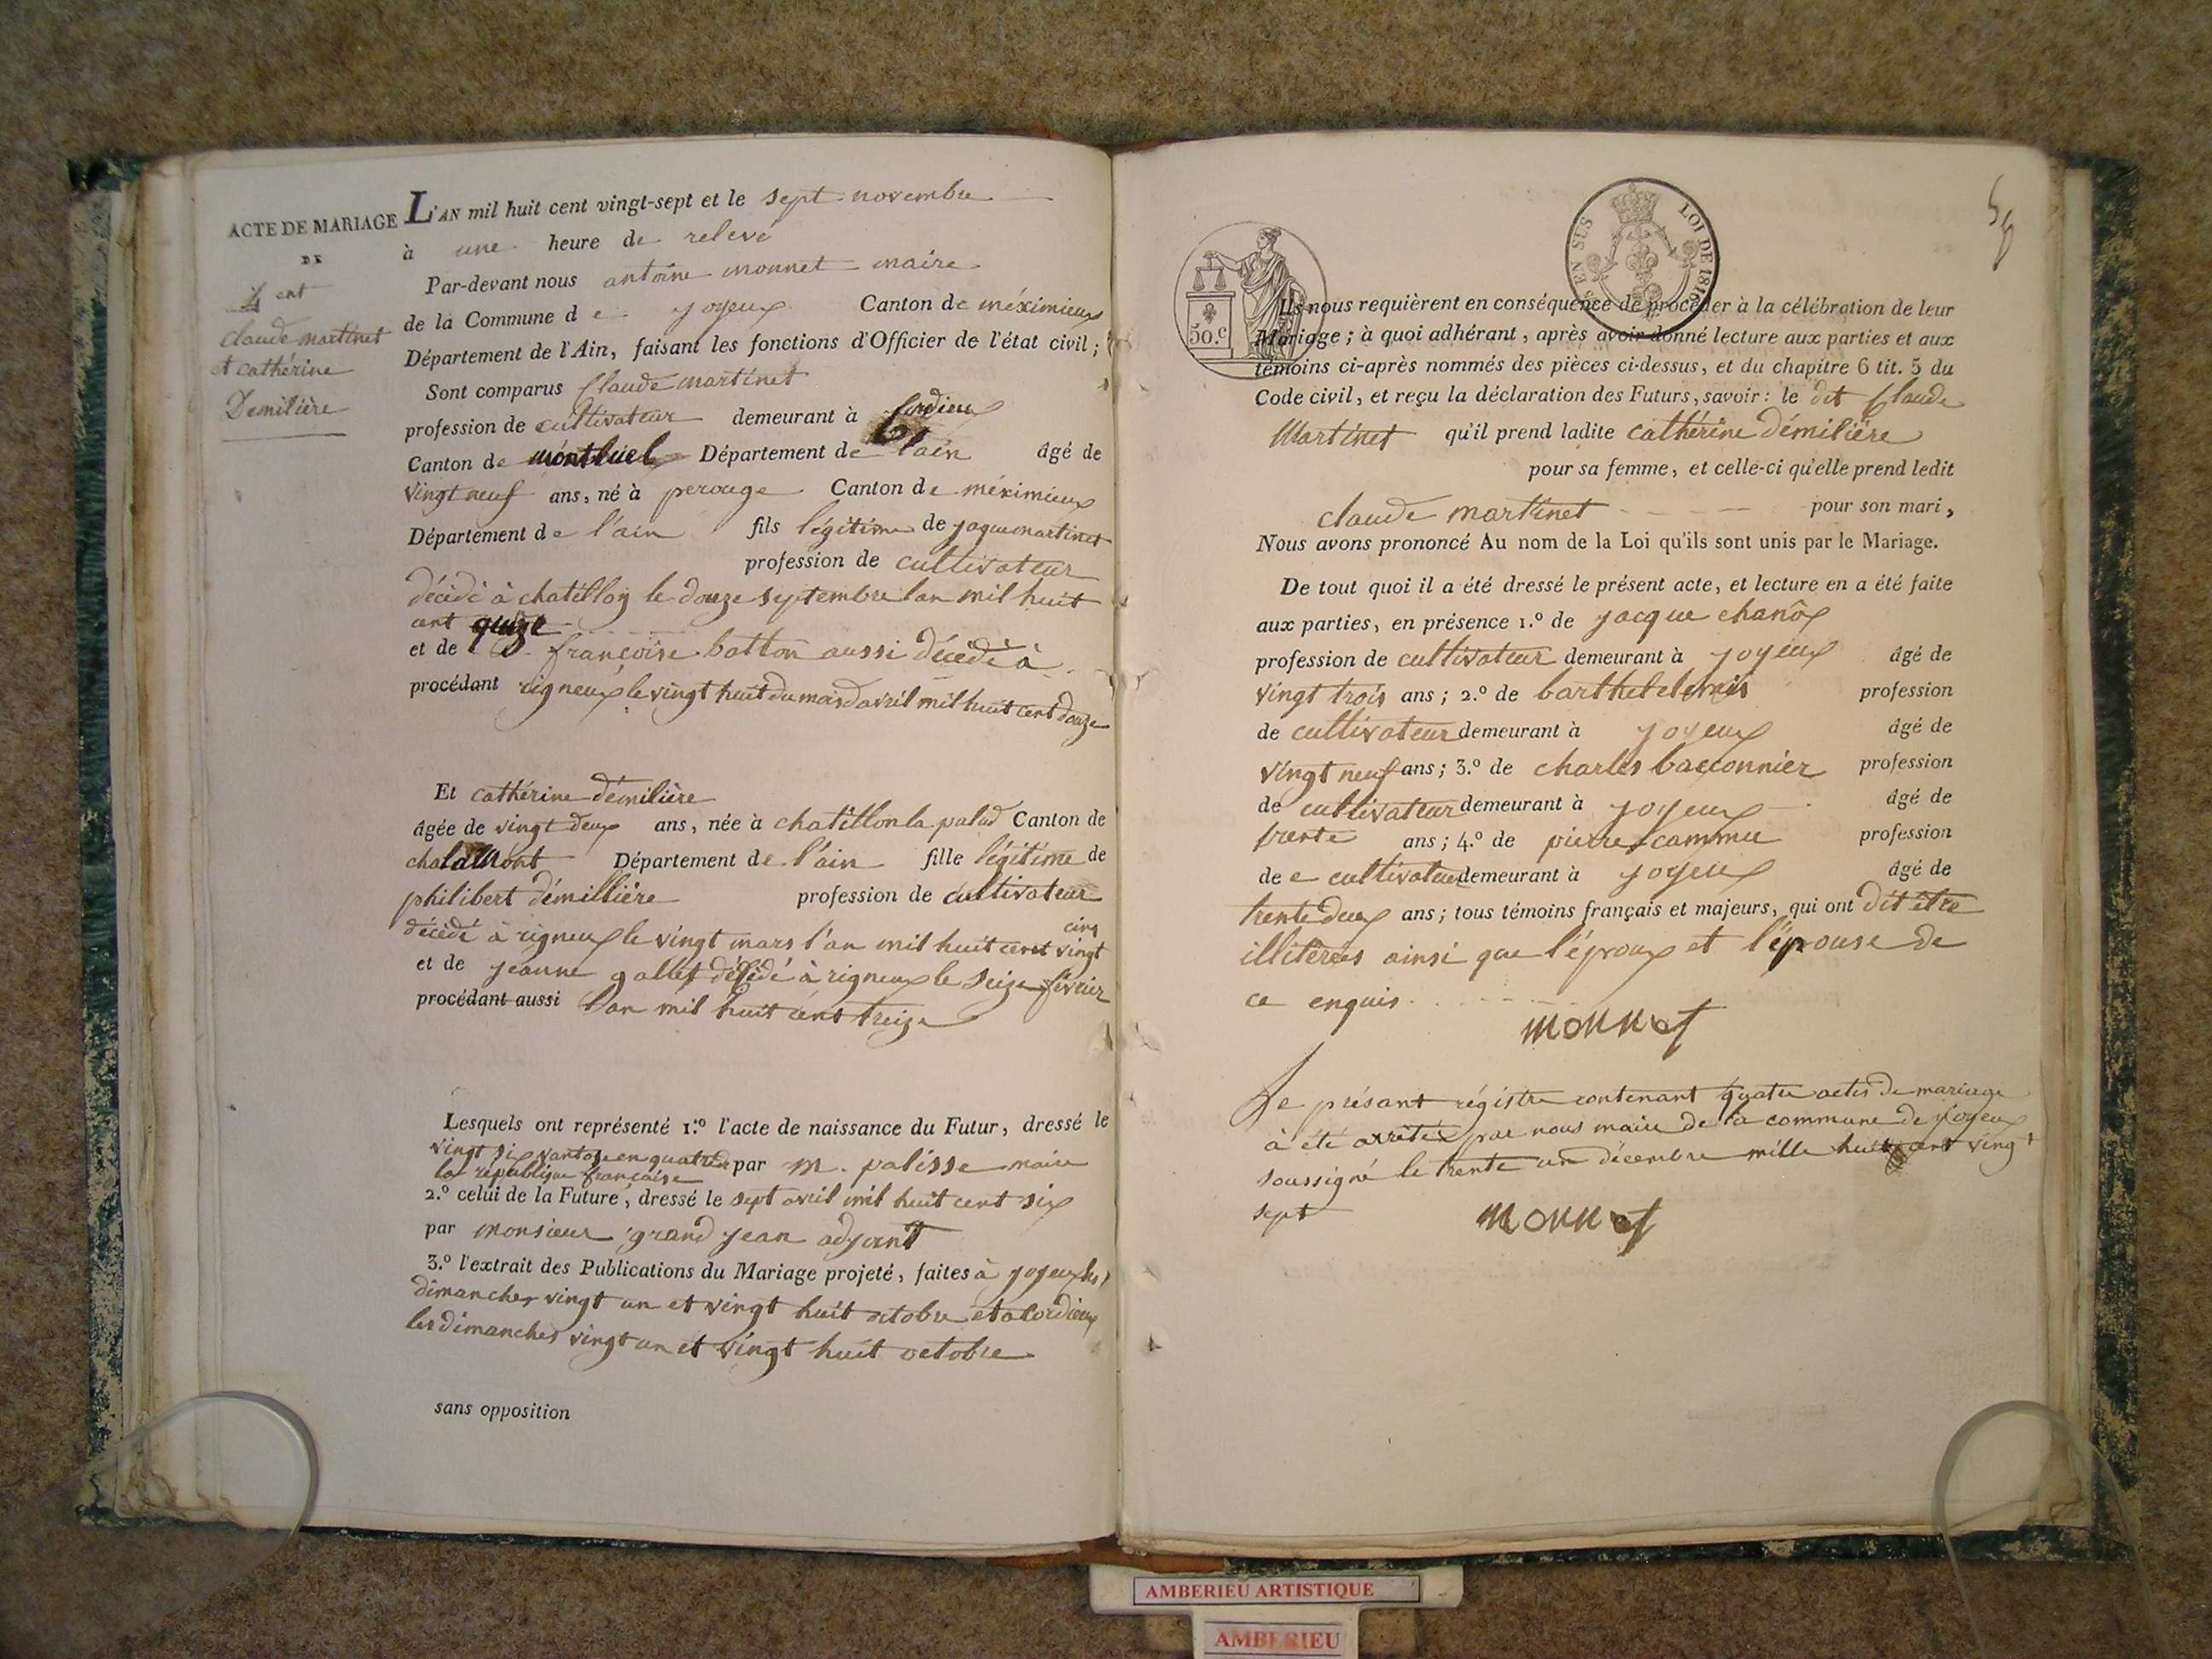 ACTE DE MARIAGE
DE
4 ent
Claude martinet
et cathérine
Demilière
L'AN mil huit cent vingt-sept et le sept novembre
à une heure de relevé
Par-devant nous antoine monnet maire
de la Commune de joyeux Canton de méximieux
Département de l'Ain, faisant les fonctions d'Officier de l'état civil;
Sont comparus Claude martinet
profession de cultivateur demeurant à Cordieux
Canton de montluel Département de lain âgé de
vingt neuf ans, né à perouge Canton de méximieux
Département de l'ain fils légitime de jaque martinet
profession de cultivateur
décédé à chatillon le douze septembre lan mil huit
cent quize
et de françoise batton aussi décédé à
procédant rigneux le vingt huit du mois davril mil huit cent douze
Et cathérine démilière
âgée de vingt deux ans, née à chatillon la palud Canton de
chalamont Département de l'ain fille légitime de
philibert démillière profession de cultivateur
décédé à rigneux le vingt mars l'an mil huit cent vingt cinq
et de jeanne gallet décédé à rigneux le seize février
procédant aussi l'an mil huit cent treize
Lesquels ont représenté 1.º l'acte de naissance du Futur, dressé le
vingt six vantose en quatre de par m. palisse maire
la république française
2.º celui de la Future, dressé le sept avril mil huit cent six
par monsieur grand jean adjoint
3.º l'extrait des Publications du Mariage projeté, faites à joyeux les
dimanches vingt un et vingt huit octobre et a Cordieux
les dimanches vingt un et vingt huit octobre
sans opposition
50.c
EN SUS
LOI DE 1816
Ils nous requièrent en conséquence de procéder à la célébration de leur
Mariage; à quoi adhérant, après avoir donné lecture aux parties et aux
témoins ci-après nommés des pièces ci-dessus, et du chapitre 6 tit. 5 du
Code civil, et reçu la déclaration des Futurs, savoir: le dit Claude
Martinet qu'il prend ladite cathérine démilière
pour sa femme, et celle-ci qu'elle prend ledit
claude martinet pour son mari,
Nous avons prononcé Au nom de la Loi qu'ils sont unis par le Mariage.
De tout quoi il a été dressé le présent acte, et lecture en a été faite
aux parties, en présence 1.º de jacque chanôx
profession de cultivateur demeurant à joyeux âgé de
vingt trois ans; 2.º de profession
de cultivateur demeurant à joyeux âgé de
vingt neuf ans; 3.º de charles bacconnier profession
de cultivateur demeurant à joyeux âgé de
trente ans; 4.º de pierre cammu profession
de e cultivateur demeurant à joyeux âgé de
trente deux ans; tous témoins français et majeurs, qui ont dit être
illitérés ainsi que l'époux et l'épouse de
ce enquis.
monnet
Le présant régistre contenant quatre actes de mariage
à été arrêtée par nous maire de la commune de joyeux
soussigné le trente un décembre mille huit cent vingt
sept
monnet
AMBERIEU ARTISTIQUE
AMBERIEU